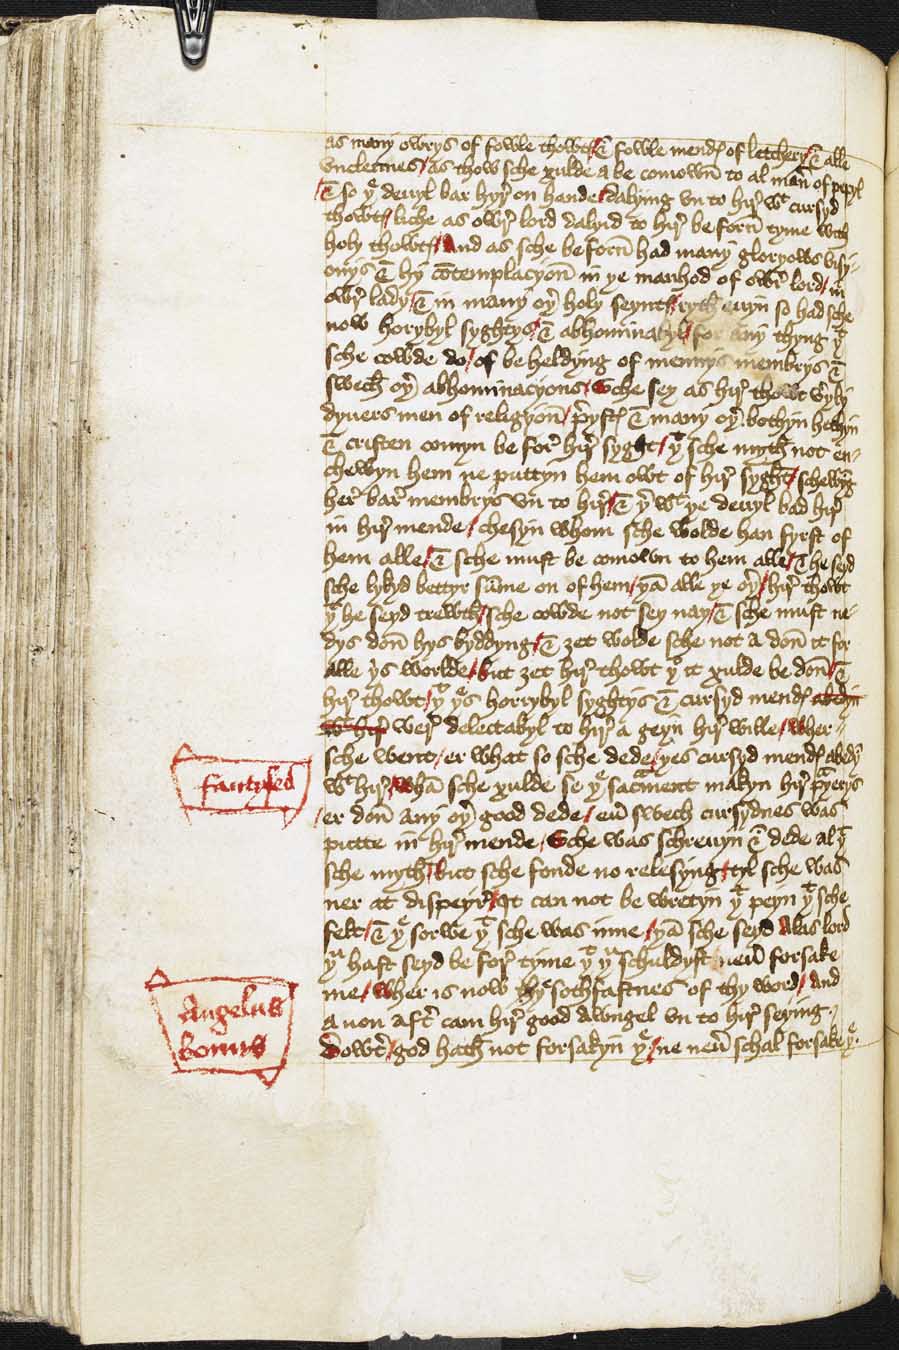 as many owrys of fowle thowtys / & fowle mendys of letchery / & alle
vnclennes / as thow sche xulde a be comown to al man̄ of pepyl
/ & so þe deuyl bar hyr̄ on hande / dalying vn to hir̄ wt cursyd
thowtys / liche as owr̄ lord dalyid to hir̄ be forn̄ tyme wyth
holy thowtys / And as sche be forn̄ had many gloryows visy-
onys & hy contemplacyon̄ in þe manhod of owr̄ lord / in
owr̄ lady / & in many oþr̄ holy seynts / ryth euyn so had sche
now horybyl syghtys / & abhominabyl / for any thyng þt
sche cowde do / of be heldyng of mennys membrys &
swech oþr̄ abhominacyons / Sche sey as hir̄ thowt v̄yly
dyuers men of religyon̄ / p̄ystys & many oþr̄ bothyn hethyn
& cristen comyn be for̄ hir̄ syght / þt sche myth not en-
chewyn hem ne puttyn hem owt of hir̄ syght / schewyng
her̄ bar̄ membrys vn to hir̄ / & þr̄ wt þe deuyl bad hir̄
in hir̄ mende / chesyn whom sche wolde han fyrst of
hem alle / & sche must be comown to hem alle / & he seyd
sche lykyd bettyr sūme on of hem / þan alle þe oþr̄ / hir̄ thowt
þt he seyd trewth / sche cowde not sey nay / & sche must ne-
dys don̄ hys byddyng / & zet wolde sche not a don̄ it for
alle þis worlde / but zet hir̄ thowt þt it xulde be don̄ / &
hir̄ thowt / þt þes horrybyl syghtys & cursyd mendys abedyn
wt hir̄ wer̄ delectabyl to hir̄ a geyn hir̄ wille / wher-
sche went / er what so sche dede / þes cursyd mendys abedyn
Fantysed
wt hir̄ / whan sche xulde se þe sacrament makyn hir̄ prayerys
/ er don̄ any oþr̄ good dede / eū swech cursydnes was
putte in hir̄ mende / Sche was schreuyn & dede al þt
sche myth / but sche fonde no relesyng / tyl sche was
ner at dispeyr̄ / It can not be wretyn þt peyn þt sche
felt / & þe sorwe þt sche was inne / þan sche seyd Alas lord
þu hast seyd be for̄ tyme þt þu schuldyst neū forsake
Angelus
me / wher is now þe sothfastnes of thy word / And
bonus
a non aft̄ cam hir̄ good Awngel vn to hir̄ seying.
Dowt̄ / god hath not forsakyn þe / ne neū schal forsake þe.